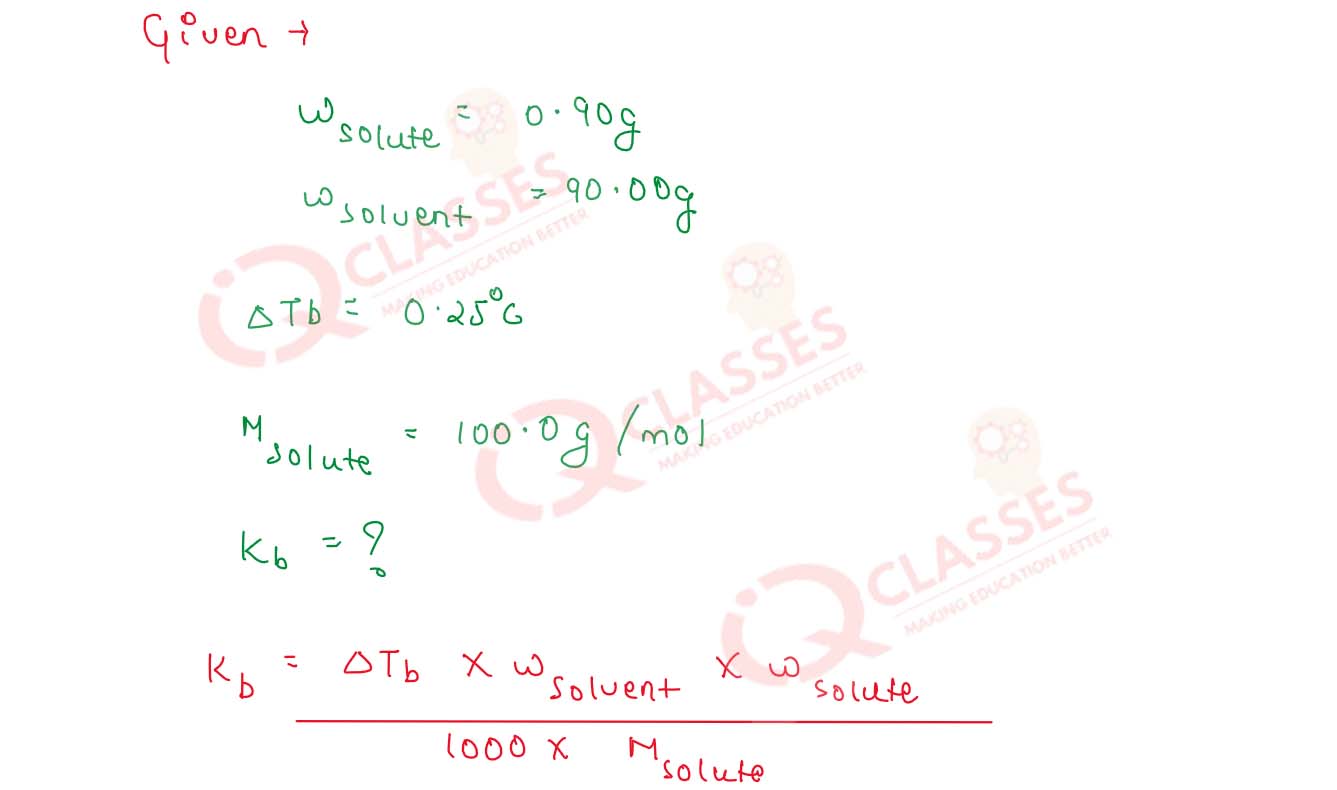 Given →
W solute = 0.90g
W solvent = 90.00g
ΔTb = 0.25°C
M solute = 100.0g/mol
Kb = ?
Kb = ΔTb X W solvent X W solute
1000 X M solute
iQ CLASSES
MAKING EDUCATION BETTER
iQ CLASSES
MAKING EDUCATION BETTER
iQ CLASSES
MAKING EDUCATION BETTER